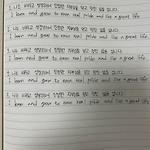 1. 나는 배우고 성장하여 진정한 자부심을 얻고 멋진 삶을 산다.
I learn and grow to earn real pride and live a great life.
2. 나는 배우고 성장하여 진정한 자부심을 얻고 멋진 삶을 산다.
I learn and grow to earn real pride and live a great life.
3. 나는 배우고 성장하여 진정한 자부심을 얻고 멋진 삶을 산다.
I learn and grow to earn real pride and live a great life.
4. 나는 배우고 성장하여 진정한 자부심을 얻고 멋진 삶을 산다.
I learn and grow to earn real pride and live a great life.
5. 나는 배우고 성장하여 진정한 자부심을 얻고 멋진 삶을 산다.
I learn and grow to earn real pride and live a great life.